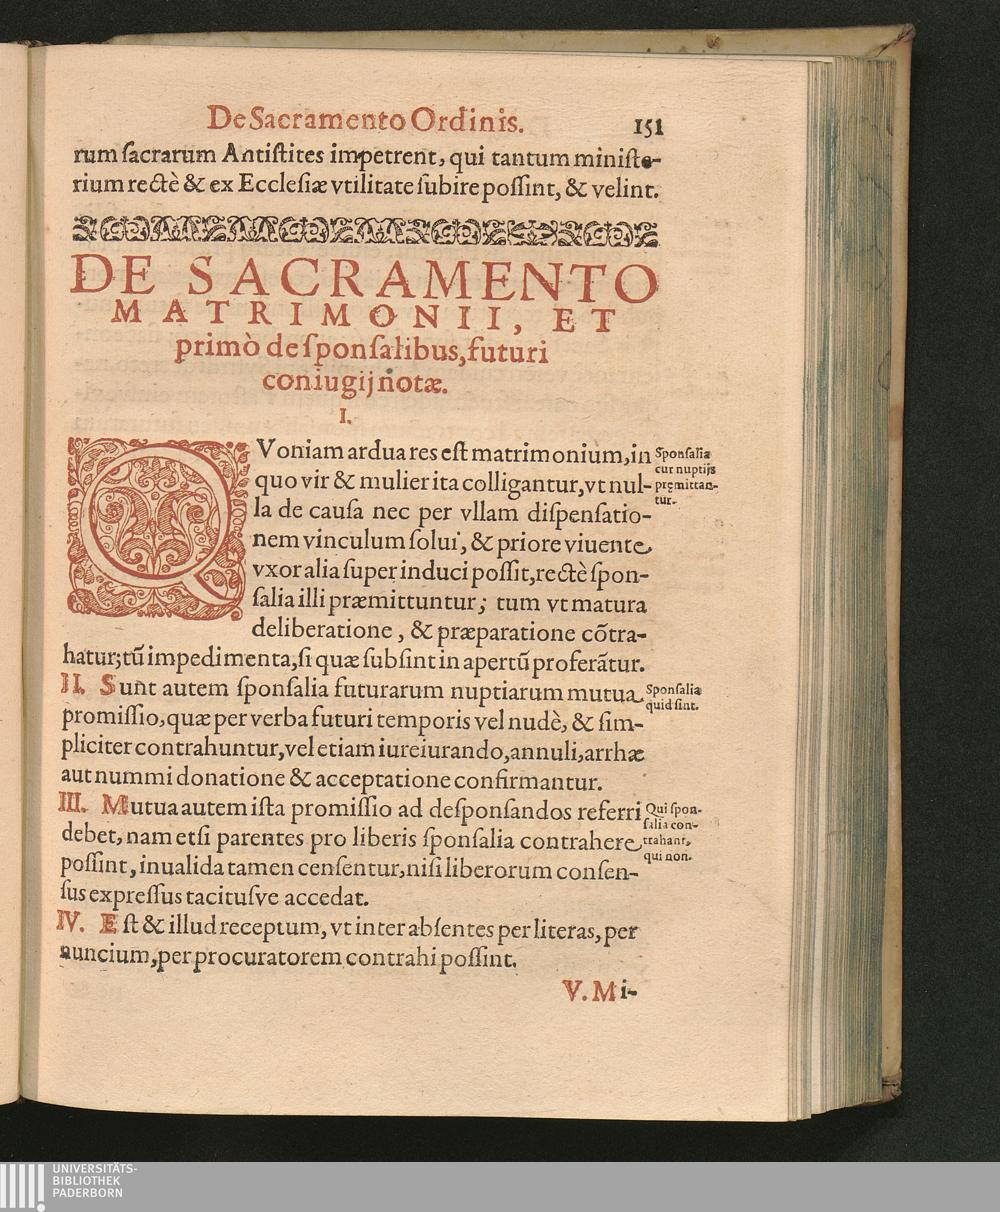 De Sacramento Ordinis. 151
rum sacrarum Antistites impetrent, qui tantum ministe-
rium rectè & ex Ecclesiæ vtilitate subire possint, & velint.
DE SACRAMENTO
MATRIMONII, ET
primò de sponsalibus, futuri
coniugij notæ.
I.
QVoniam ardua res est matrimonium, in
quo vir & mulier ita colligantur, vt nul-
la de causa nec per vllam dispensatio-
nem vinculum solui, & priore viuente
vxor alia superinduci possit, rectè spon-
salia illi præmittuntur; tum vt matura
deliberatione, & præparatione cõtra-
hatur; tũ impedimenta, si quæ subsint in apertũ proferãtur.
Sponsalia
cur nuptijs
pręmittan-
tur.
II. Sunt autem sponsalia futurarum nuptiarum mutua
promissio, quæ per verba futuri temporis vel nudè, & sim-
pliciter contrahuntur, vel etiam iureiurando, annuli, arrhæ
aut nummi donatione & acceptatione confirmantur.
Sponsalia
quid sint.
III. Mutua autem ista promissio ad desponsandos referri
debet, nam etsi parentes pro liberis sponsalia contrahere
possint, inualida tamen censentur, nisi liberorum consen-
sus expressus tacitusve accedat.
Qui spon-
salia con-
trahant,
qui non.
IV. Est & illud receptum, vt inter absentes per literas, per
nuncium, per procuratorem contrahi possint.
V. Mi-
UNIVERSITÄTS-
BIBLIOTHEK
PADERBORN